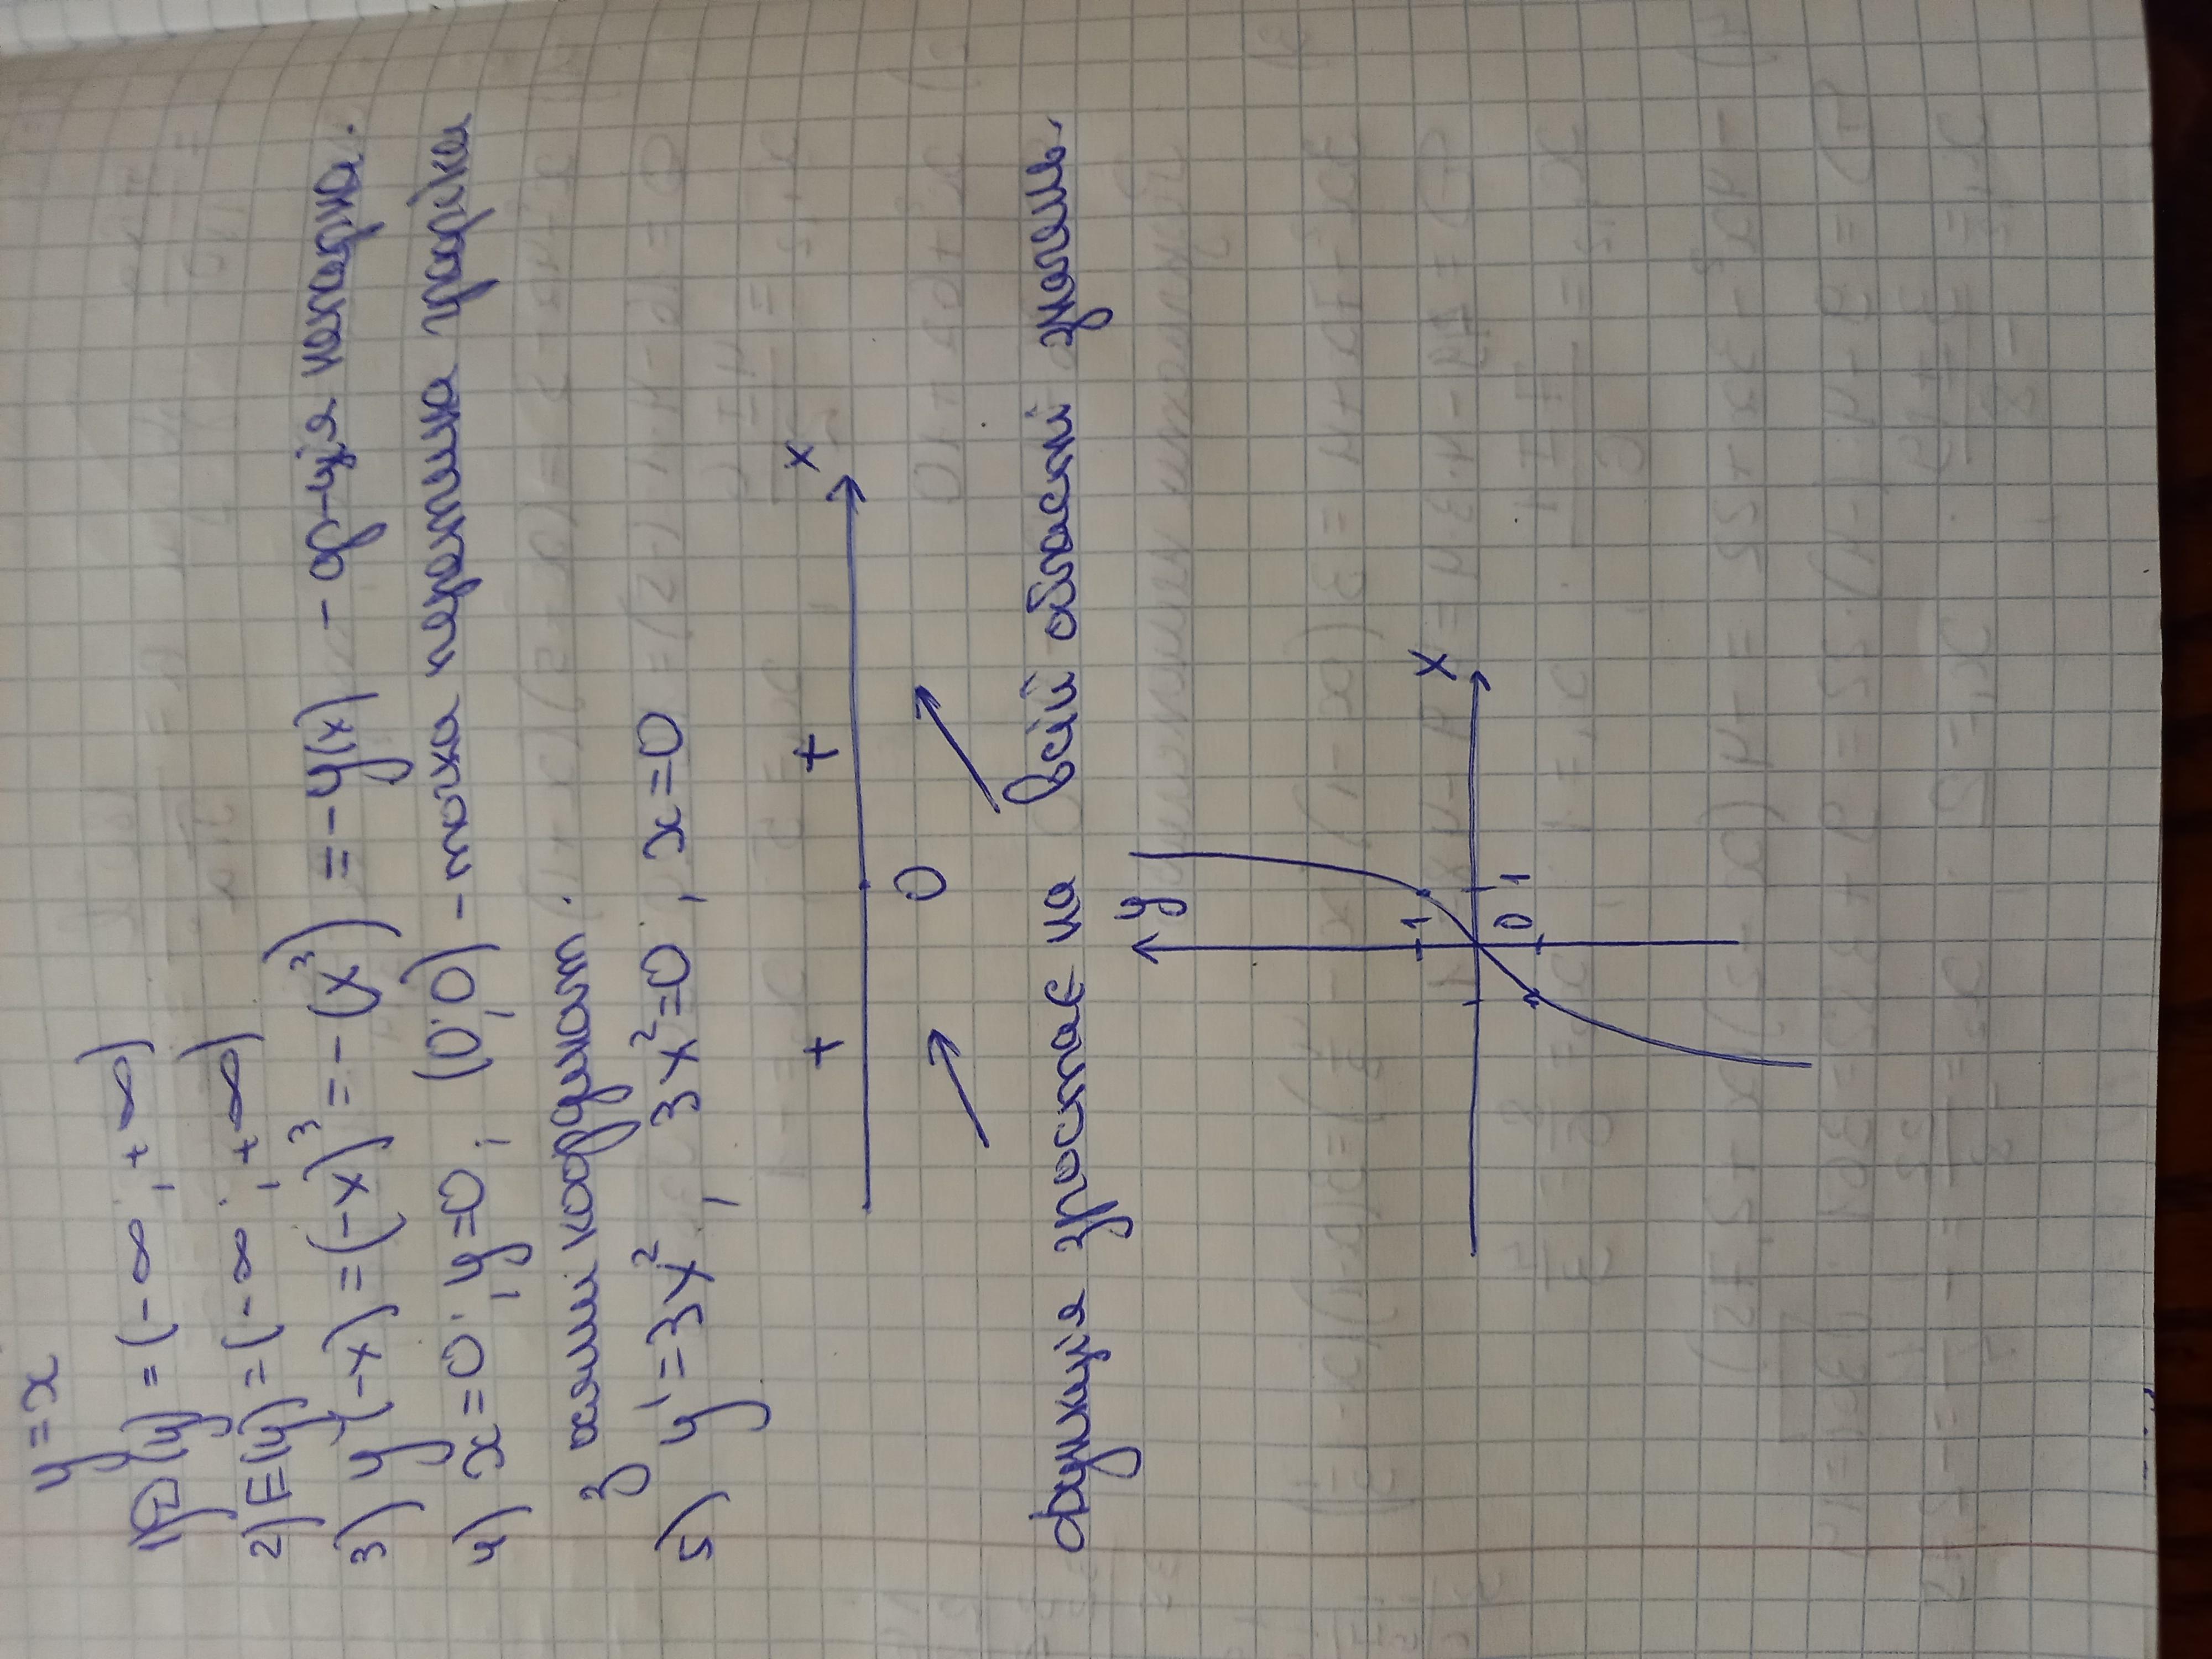 y = x
1) D(y) = (-∞; +∞)
2) E(y) = (-∞; +∞)
3) y(-x) = (-x)³ = -(x³) = -y(x) - ф-ція непарна.
4) x=0; y=0; (0;0) - точка перетина графіка
з осями координат.
5) y' = 3x², 3x²=0; x=0
+ + x
0
Функція зростає на всій області значень.
y
x
1
0 1
-1